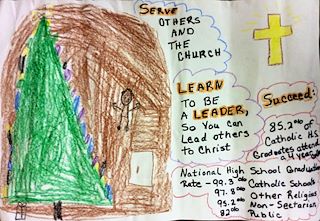 SERVE
OTHERS
AND
THE
CHURCH
LEARN
TO BE
A LEADER,
So You Can
Lead others
to Christ
Succeed:
85.2% of
Catholic H.S.
Graduates attend
a 4 year
National High School Graduation
Rate - 99.3% Catholic Schools
97.8% Other Religions
95.2% Non-Sectarian
82% Public